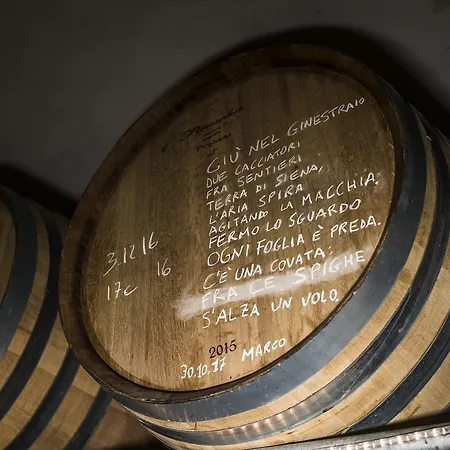 GIÙ NEL GINESTRAIO
DUE CACCIATORI
FRA SENTIERI
TERRA DI SIENA,
L'ARIA SPIRA
AGITANDO LA MACCHIA:
FERMO LO SGUARDO
OGNI FOGLIA È PREDA.
C'È UNA COVATA:
FRA LE SPIGHE
S'ALZA UN VOLO.
3.12 16
17c 16
2015
30.10.17 MARCO